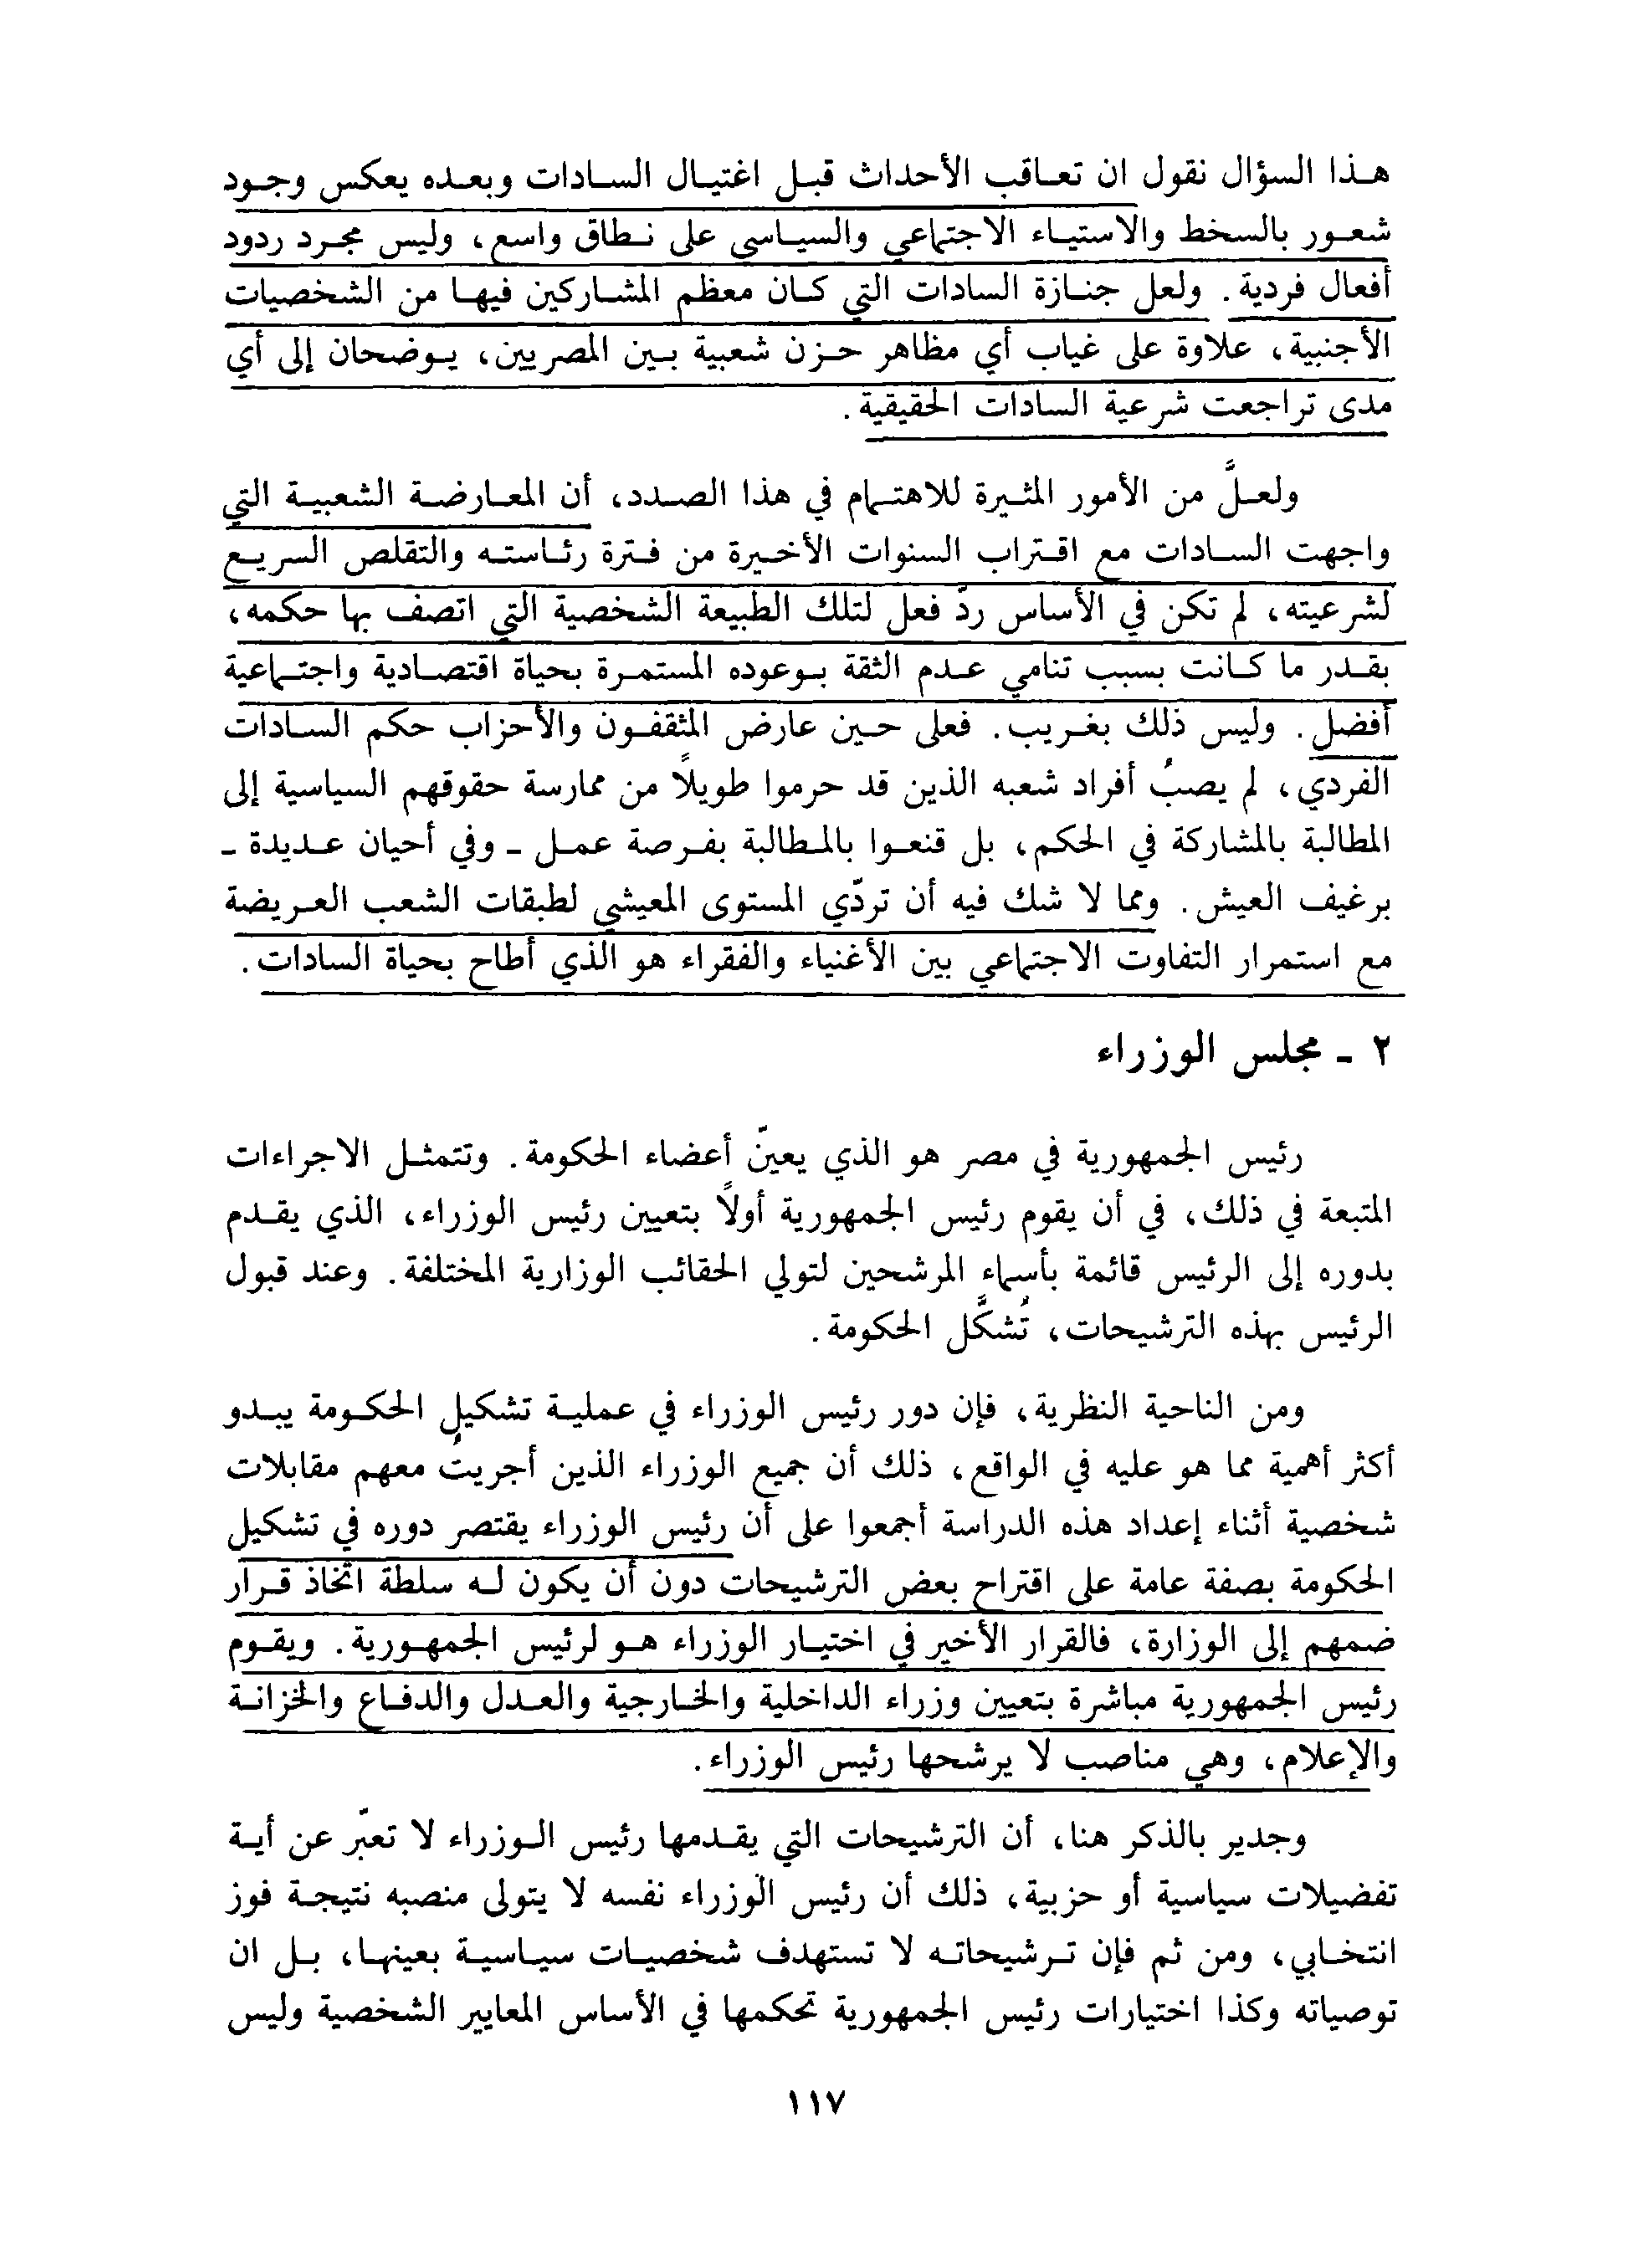 هذا السؤال نقول ان تعاقب الأحداث قبل اغتيال السادات وبعده يعكس وجود
شعور بالسخط والاستياء الاجتماعي والسياسي على نطاق واسع، وليس مجرد ردود
أفعال فردية. ولعل جنازة السادات التي كان معظم المشاركين فيها من الشخصيات
الأجنبية، علاوة على غياب أي مظاهر حزن شعبية بين المصريين، يوضحان إلى أي
مدى تراجعت شرعية السادات الحقيقية.
ولعلَّ من الأمور المثيرة للاهتمام في هذا الصدد، أن المعارضة الشعبية التي
واجهت السادات مع اقتراب السنوات الأخيرة من فترة رئاسته والتقلص السريع
لشرعيته، لم تكن في الأساس ردّ فعل لتلك الطبيعة الشخصية التي اتصف بها حكمه،
بقدر ما كانت بسبب تنامي عدم الثقة بوعوده المستمرة بحياة اقتصادية واجتماعية
أفضل. وليس ذلك بغريب. فعلى حين عارض المثقفون والأحزاب حكم السادات
الفردي، لم يصبُ أفراد شعبه الذين قد حرموا طويلًا من ممارسة حقوقهم السياسية إلى
المطالبة بالمشاركة في الحكم، بل قنعوا بالمطالبة بفرصة عمل - وفي أحيان عديدة -
برغيف العيش. ومما لا شك فيه أن تردّي المستوى المعيشي لطبقات الشعب العريضة
مع استمرار التفاوت الاجتماعي بين الأغنياء والفقراء هو الذي أطاح بحياة السادات.
٢ - مجلس الوزراء
رئيس الجمهورية في مصر هو الذي يعينّ أعضاء الحكومة. وتتمثل الاجراءات
المتبعة في ذلك، في أن يقوم رئيس الجمهورية أولًا بتعيين رئيس الوزراء، الذي يقدم
بدوره إلى الرئيس قائمة بأسماء المرشحين لتولي الحقائب الوزارية المختلفة. وعند قبول
الرئيس بهذه الترشيحات، تُشكَّل الحكومة.
ومن الناحية النظرية، فإن دور رئيس الوزراء في عملية تشكيل الحكومة يبدو
أكثر أهمية مما هو عليه في الواقع، ذلك أن جميع الوزراء الذين أجريتُ معهم مقابلات
شخصية أثناء إعداد هذه الدراسة أجمعوا على أن رئيس الوزراء يقتصر دوره في تشكيل
الحكومة بصفة عامة على اقتراح بعض الترشيحات دون أن يكون له سلطة اتخاذ قرار
ضمهم إلى الوزارة، فالقرار الأخير في اختيار الوزراء هو لرئيس الجمهورية. ويقوم
رئيس الجمهورية مباشرة بتعيين وزراء الداخلية والخارجية والعدل والدفاع والخزانة
والإعلام، وهي مناصب لا يرشحها رئيس الوزراء.
وجدير بالذكر هنا، أن الترشيحات التي يقدمها رئيس الوزراء لا تعبّر عن أية
تفضيلات سياسية أو حزبية، ذلك أن رئيس الوزراء نفسه لا يتولى منصبه نتيجة فوز
انتخابي، ومن ثم فإن ترشيحاته لا تستهدف شخصيات سياسية بعينها، بل ان
توصياته وكذا اختيارات رئيس الجمهورية تحكمها في الأساس المعايير الشخصية وليس
١١٧